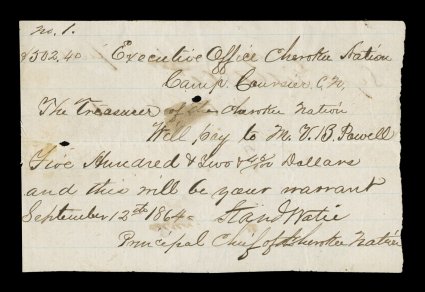 No. 1.
$502.40 Executive Office Cherokee Nation
Camp Coursier, C.N,
The Treasurer of the Cherokee Nation
Will pay to M. V. B. Powell
Five Hundred & two & 40/100 Dollars
and this will be your warrant
September 12th 1864 Stand Watie
Principal Chief of Cherokee Nation